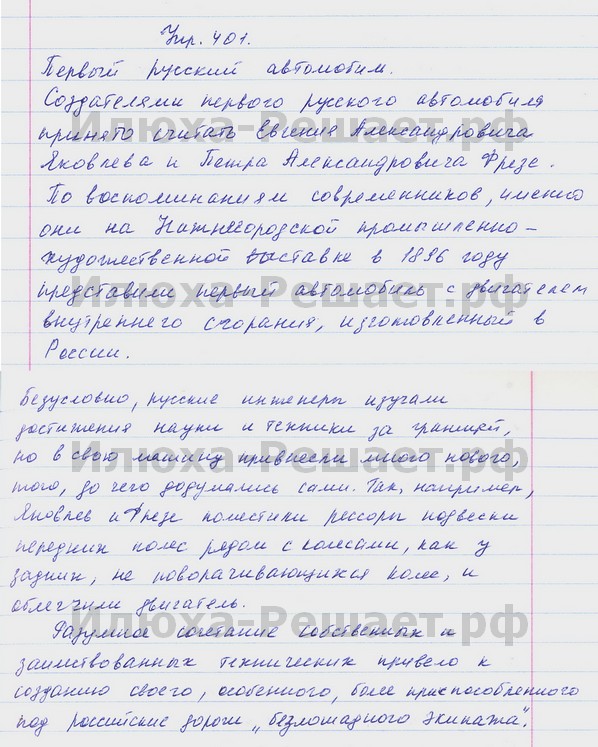 Упр. 401.
Первый русский автомобиль.
Создателями первого русского автомобиля
принято считать Евгения Александровича
Яковлева и Петра Александровича Фрезе.
По воспоминаниям современников, именно
они на Нижнегородской промышленно-
художественной выставке в 1896 году
представили первый автомобиль с двигателем
внутреннего сгорания, изготовленный в
России.
Безусловно, русские инженеры изучали
достижения науки и техники за границей,
но в свою машину привнесли много нового,
того, до чего додумались сами. Так, например,
Яковлев и Фрезе поместили рессоры подвески
передних колес рядом с колесами, как у
задних, не поворачивающихся колес, и
облегчили двигатель.
Разумное сочетание собственных и
заимствованных технических привело к
созданию своего, особенного, более приспособленного
под российские дороги „безлошадного экипажа".
Илюха-Решает.рф
Илюха-Решает.рф
Илюха-Решает.рф
Илюха-Решает.рф